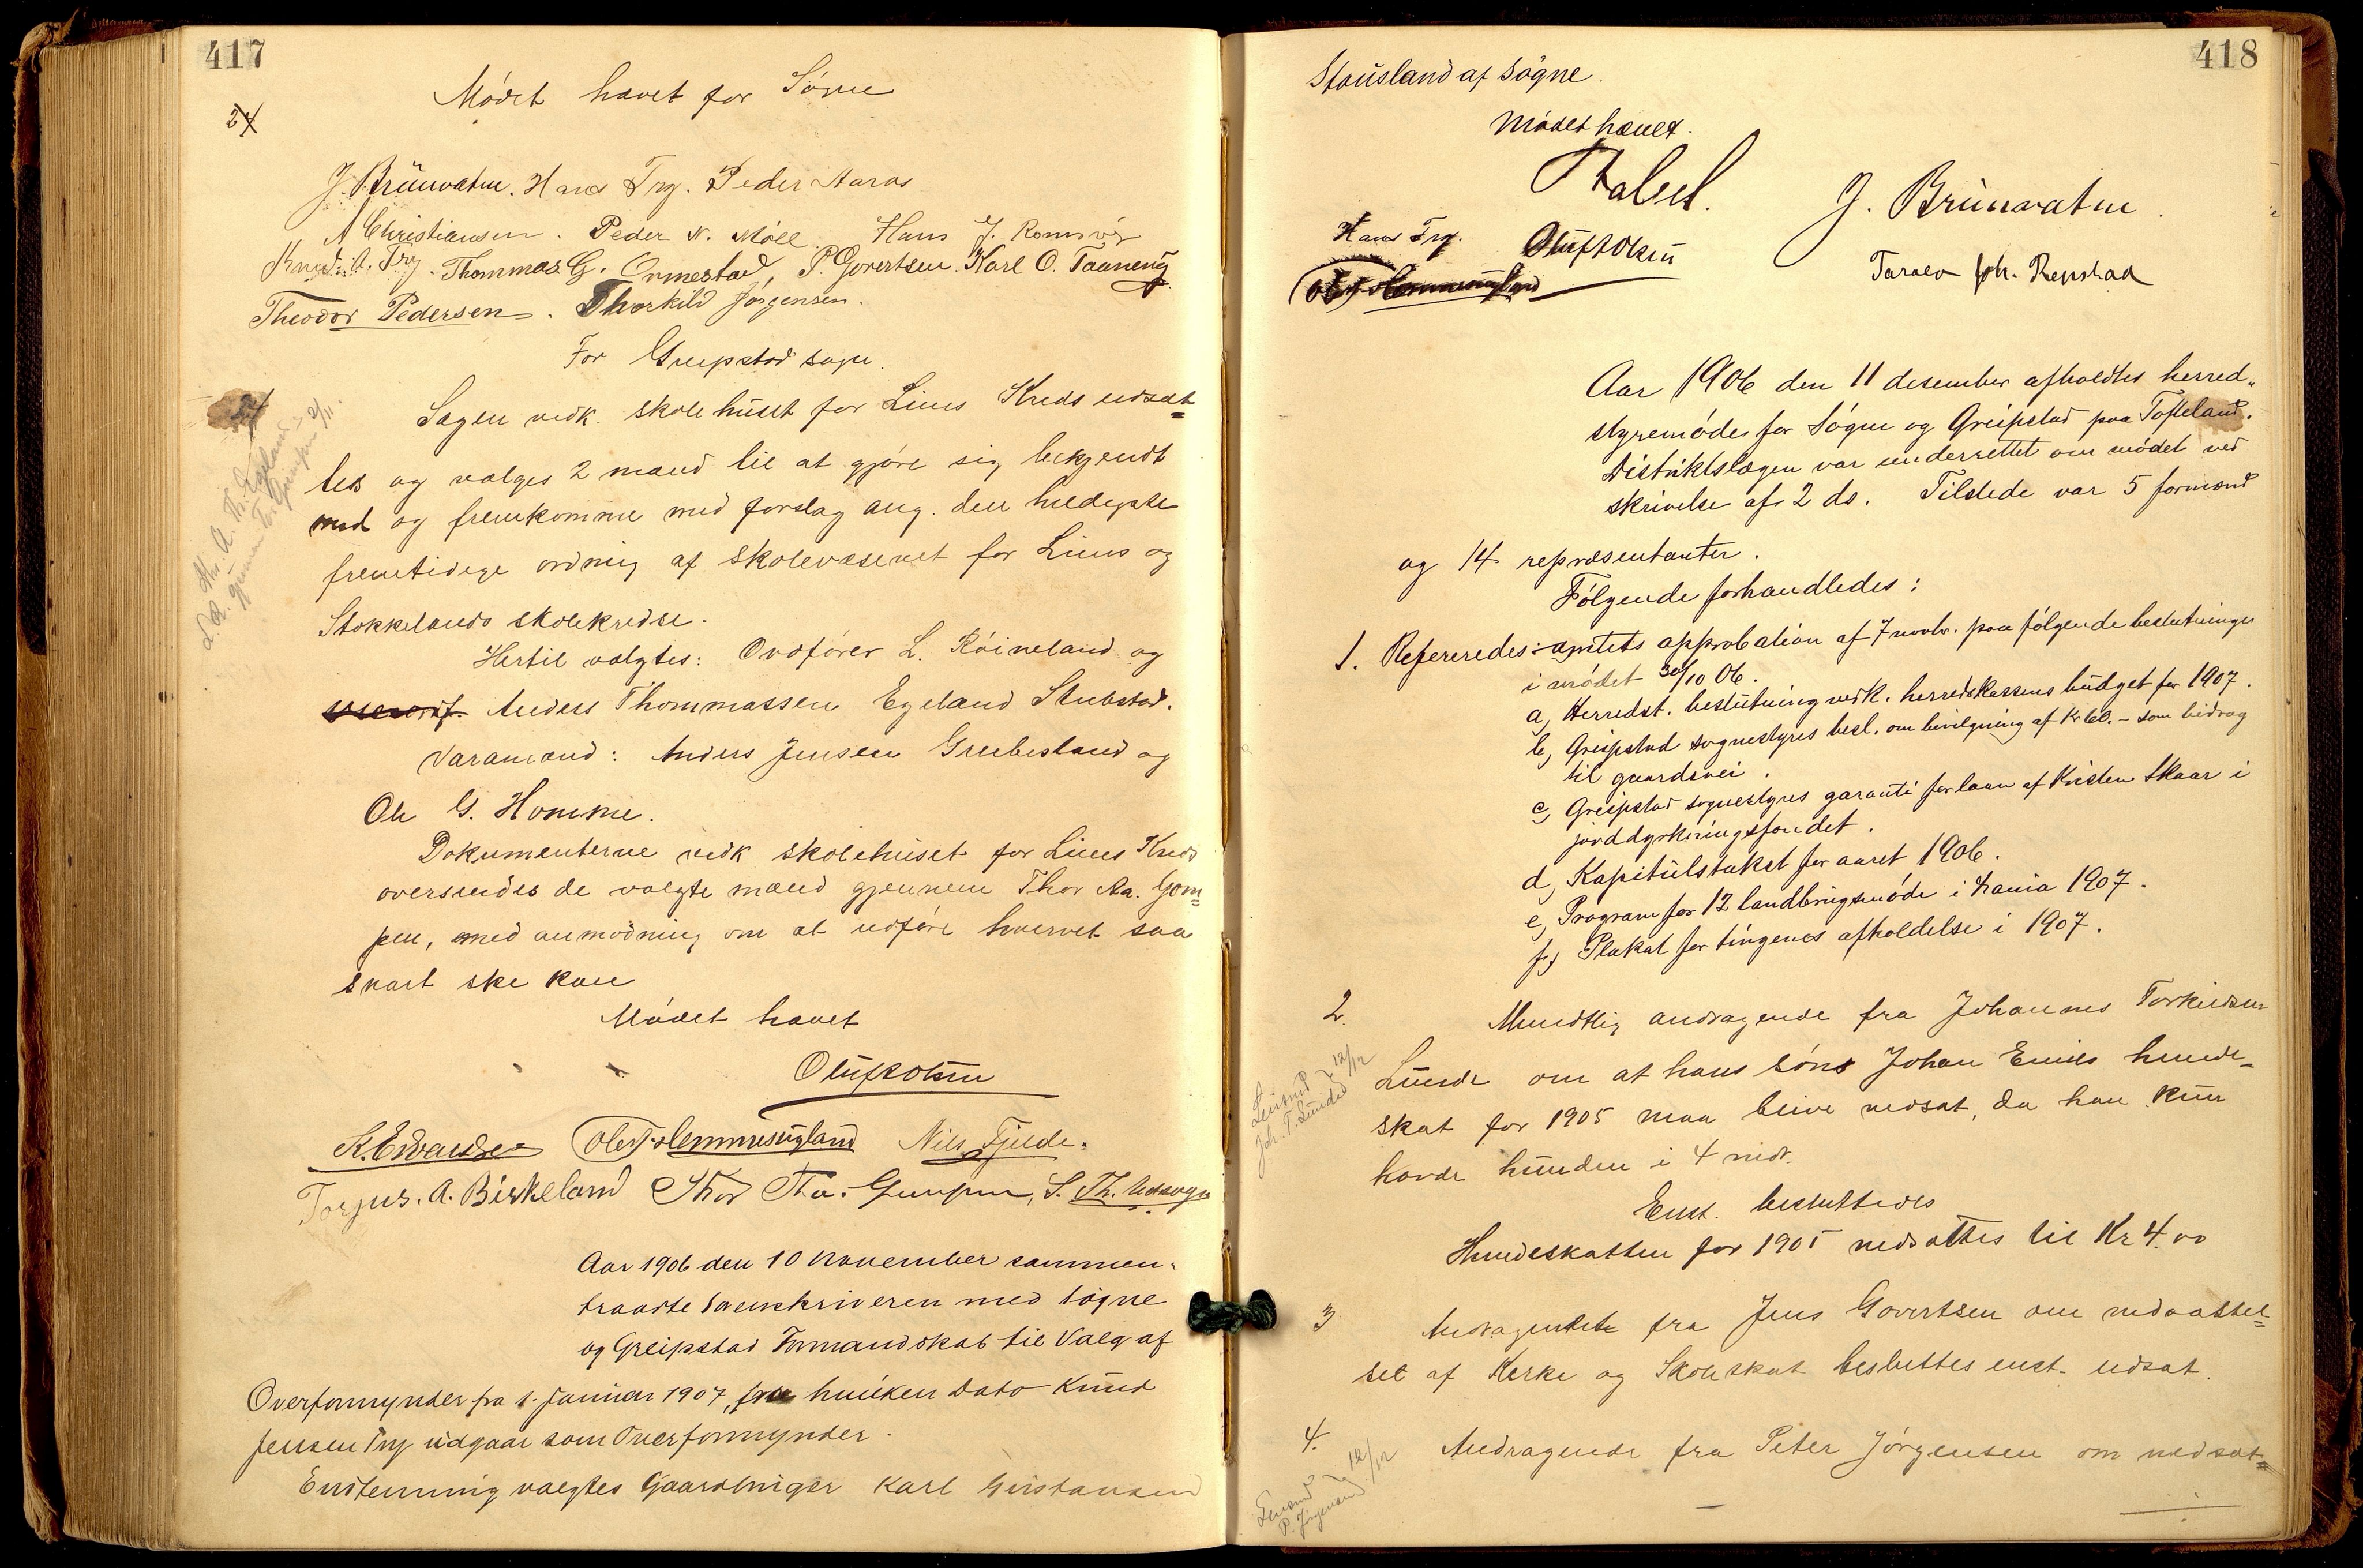 417
Mødet hævet for Søgne
24
J. Brünvatne. Hans Try. Peder Aaros
A Christiansen. Peder N. Møll. Hans J. Romsvig
Knud A. Try. Thommas G. Ormestad, P. Govertsen. Karl O. Taaneng
Theodor Pedersen. Thorkild Jørgensen.
For Greipstad sogn.
Sagen vedk. skolehuset for Lius Kreds udsat=
tes og vælges 2 mænd til at gjøre sig bekjendt
med og fremkomme med forslag ang. den heldigste
fremtidige ordning af skolevæsenet for Lius og
Stokkelands skolekredse.
Hertil valgtes: Ordfører L. Røineland og
Anders Thommassen Egeland Stubstad.
Varamænd: Anders Jensen Grubesland og
Ole G. Homme.
Dokumenterne vedk skolehuset for Lius Kreds
oversendes de valgte mænd gjennem Thor Aa. Gom=
pen, med anmodning om at udføre hvervet saa
snart ske kan
Mødet hævet
Oluf Olsen
K. Edvardsen Ole T. Hemmesugland Nils Fjelde.
Torjus. A. Birkeland Thor Aa. Gumpen, S. Th.
Aar 1906 den 10 November sammen-
traadte Sorenskriveren med Søgne
og Greipstad Formandskab til Valg af
Overformynder fra 1. Januar 1907, fra hvilken Dato Knud
Jensen Try udgaar som Overformynder.
Enstemmig valgtes Gaardbruger Karl Gustavsen
418
Stausland af Søgne.
Mødet hævet.
J. Brünvatne.
Hans Try. Oluf Olsen
Ole T. Hemmesugland
Taralv Joh. Repstad
Aar 1906 den 11 desember afholdtes herred-
styremøde for Søgne og Greipstad paa Tofteland.
Distriktslægen var underrettet om mødet ved
skrivelse af 2 ds. Tilstede var 5 formænd
og 14 repræsentanter.
Følgende forhandledes:
1. Refereredes: amtets approbation af 7 novbr. paa følgende beslutninger
i mødet 30/10 06.
a, Herredst. beslutning vedk. herredskassens budget for 1907.
b, Greipstad sognestyres besl. om bevilgning af Kr 60.- som bidrag
til gaardsvei.
c, Greipstad sognestyres garanti for laan af Kristen Skaar i
jorddyrkningsfondet.
d, Kapitulstakst for aaret 1906.
e, Program for 12 landbrugsmøde i Xania 1907.
f, Plakat for tingenes afholdelse i 1907.
2. Mundtlig andragende fra Johannes Torkildsen
Lunde om at hans søns Johan Emils hunde-
skat for 1905 maa blive nedsat, da han kun
havde hunden i 4 mdr.
Enst. besluttedes
Hundeskatten for 1905 nedsættes til Kr 4.00
3 Andragendet fra Jens Govertsen om nedsættel=
set af Kirke og Skoleskat besluttes enst. udsat.
4. Andragende fra Peter Jørgensen om nedsæt=
Joh. T. Lunde 12/12
P. Jørgensen 12/12